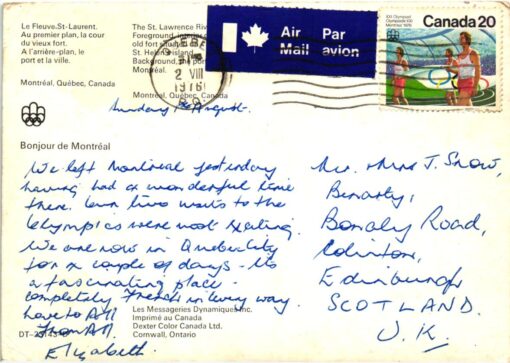 Le Fleuve.St-Laurent.
Au premier plan, la cour
du vieux fort.
A l'arrière-plan, le
port et la ville.
Montréal, Québec, Canada
The St. Lawrence
Foreground,
old fort
St. Helen's Island
Background,
Montréal.
Montréal, Québec, Canada
Air Par
Mail avion
XXI Olympiad
Olympiade XXI
Montréal 1976
Canada 20
2 VIII
1976
P.Q.
Sunday 1st August.
Bonjour de Montréal
We left Montreal yesterday
having had a wonderful time
there. Our two visits to the
Olympics were most exciting.
We are now in Quebec City
for a couple of days - its
a fascinating place -
completely French in every way.
Love to All
from All
Elizabeth.
Mr. & Mrs J. Snow,
Benarty,
Bonaly Road,
Colinton,
Edinburgh
SCOTLAND.
U.K.
Les Messageries Dynamiques Inc.
Imprimé au Canada
Dexter Color Canada Ltd.
Cornwall, Ontario